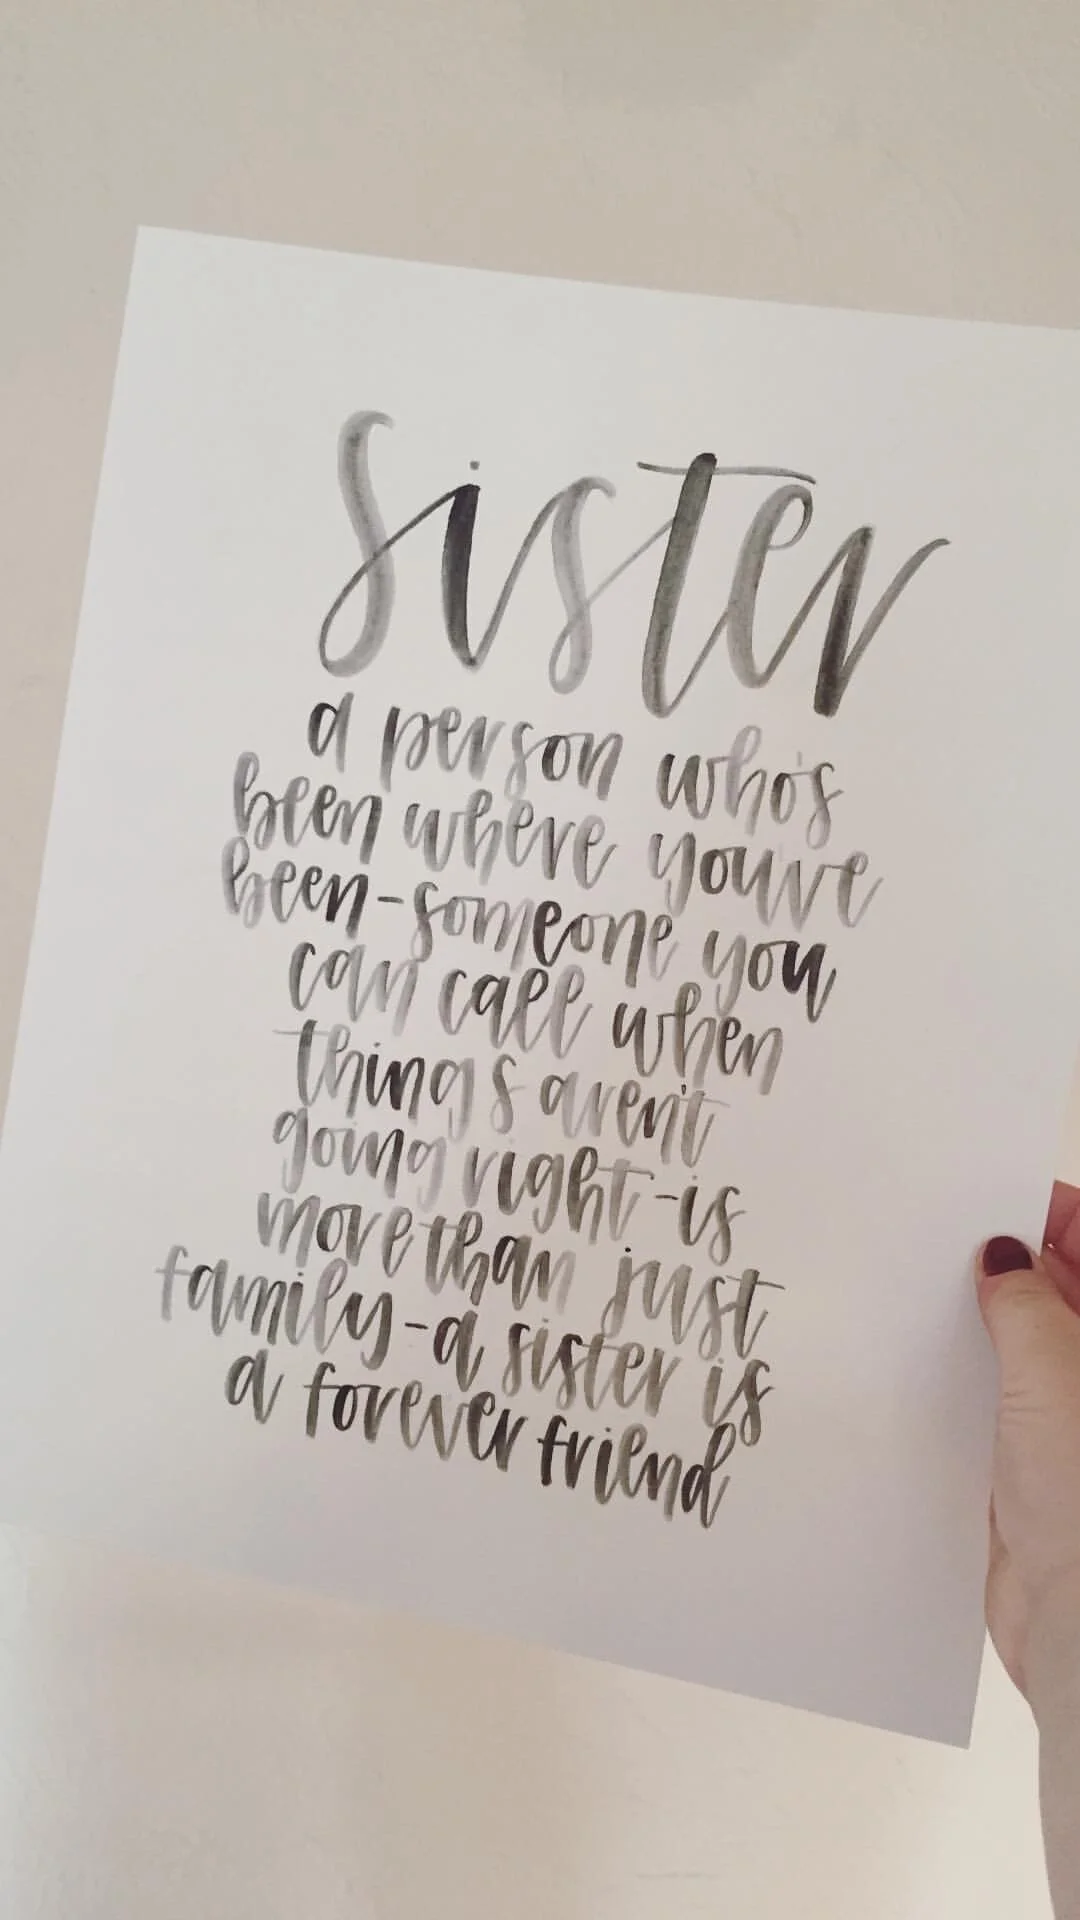 sister
a person who's
been where you've
been-someone you
can call when
things aren't
going right-is
more than just
family-a sister is
a forever friend